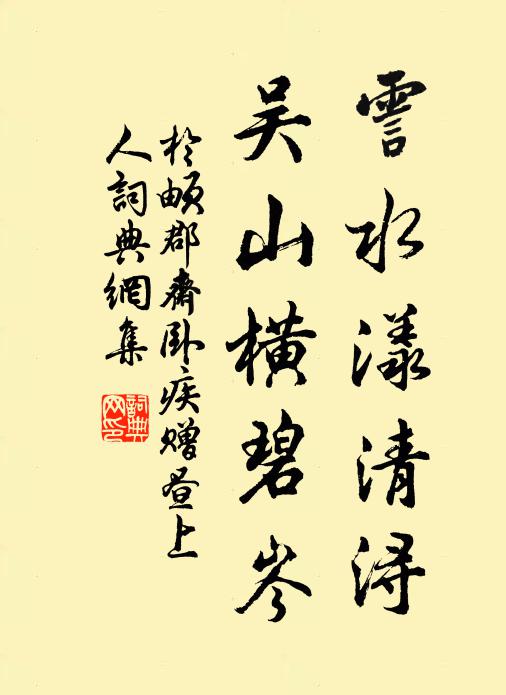 霅水漾清浔
吴山横碧岑
於頔郡齋卧疾赠昼上
人詞典網集
詞典
网印